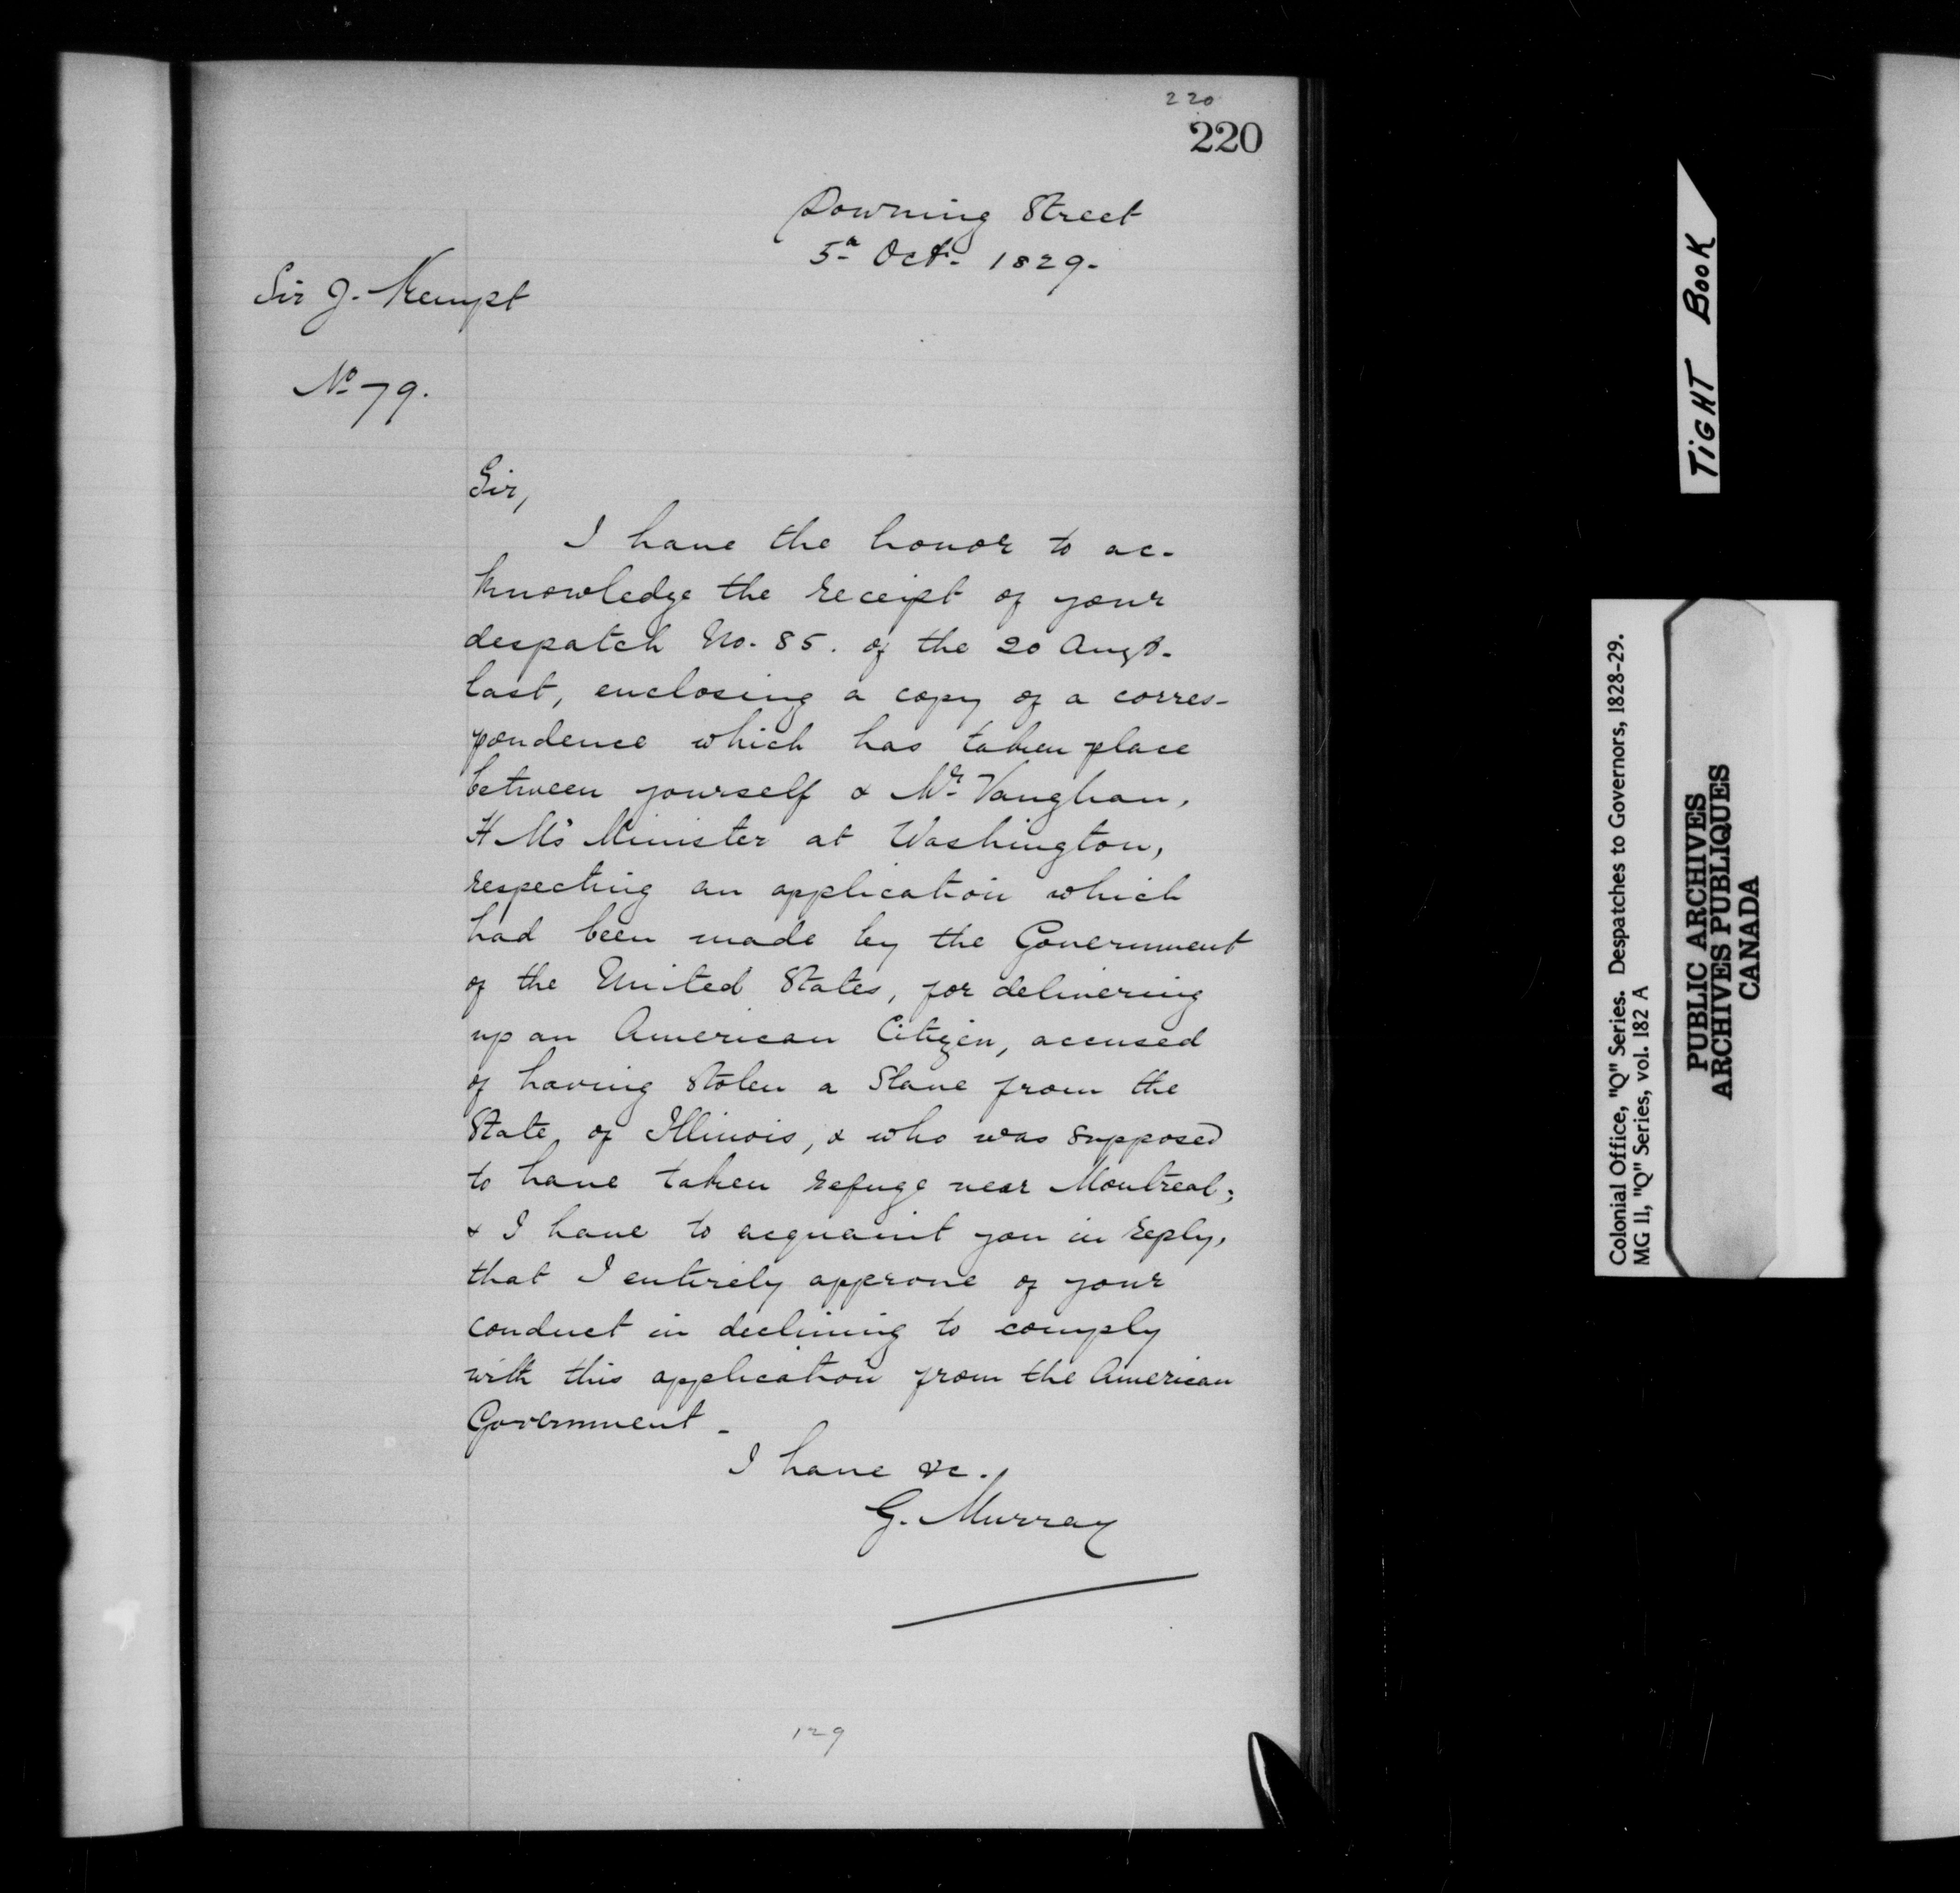 220
220
Downing Street
5th Oct. 1829.
Sir J. Kempt
No 79.
Sir,
I have the honor to ac-
knowledge the receipt of your
despatch No. 85. of the 20 Augt.
last, enclosing a copy of a corres-
pondence which has taken place
between yourself & Mr. Vaughan,
H Ms Minister at Washington,
respecting an application which
had been made by the Government
of the United States, for delivering
up an American Citizen, accused
of having Stolen a Slave from the
State, of Illinois, & who was supposed
to have taken refuge near Montreal;
& I have to acquaint you in reply,
that I entirely approve of your
conduct in declining to comply
with this application from the American
Government.
I have &c.
G. Murray
129
TIGHT BOOK
Colonial Office, "Q" Series. Despatches to Governors, 1828-29.
MG 11, "Q" Series, vol. 182 A
PUBLIC ARCHIVES
ARCHIVES PUBLIQUES
CANADA